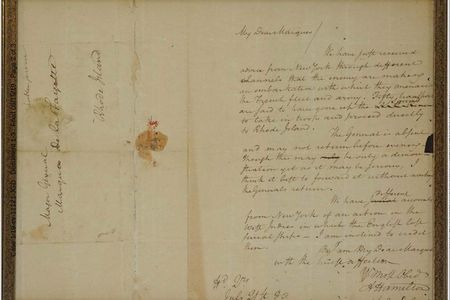 Major General
Marquis De la Fayette
Rhode Island
My Dear Marquis
We have just received
advice from New York through different
channels that the enemy are making
an embarkation with which they menace
the French fleet and army. Fifty transports
are said to have gone up the Sound
to take in troops and proceed directly
to Rhode Island.
The General is absent
and may not return before evening
though this may be only a demon
stration yet as it may be serious, I
think it best to forward it without waiting
the Generals return.
We have different accounts
from New York of an action in the
West Indies in which the English lost
several ships – I am inclined to credit
them.
I am My Dear Marquis
with the truest affection
Yr Most Obed
A Hamilton